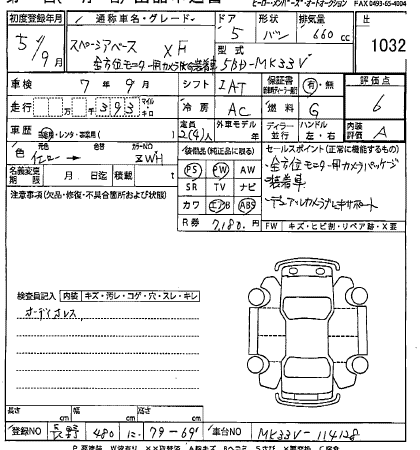 ヒーロー・メンバーズ・オートオークション FAX 0493-65-4004
初度登録年月 通称車名・グレード ドア 形状 排気量
5/9月 スペーシアベース XF 5 バン 660 cc 1032
全方位モニター用カメラPKG装着車 5BD-MK33V
車検 7年9月 シフト IAT 保証書 有・無 評価点
走行 393 マイル キロ 冷房 AC 燃料 G 6
車歴 自家用・レンタ・事業用( ) 定員 2(4)人 外車モデル ディーラー 並行 ハンドル 左・右 内装評価 A
色 元色 色替 カラーNO ZWH
装備品(純正品に限る) セールスポイント(正常に機能するもの)
名義変更期限 月 日迄 積載 t
PS PW AW
SR TV ナビ
カワ エアB ABS
R券 7,180円
全方位モニター用カメラパッケージ
装着車
デュアルカメラブレーキサポート
注意事項(欠品・修復・不具合箇所および状態)
FW キズ・ヒビ割・リペア跡・X要
検査員記入 内装 キズ・汚レ・コゲ・穴・スレ・キレ
オーディオレス
長さ cm 幅 cm 高さ cm
登録NO 長野 480 79-69 車台NO MK33V-114128